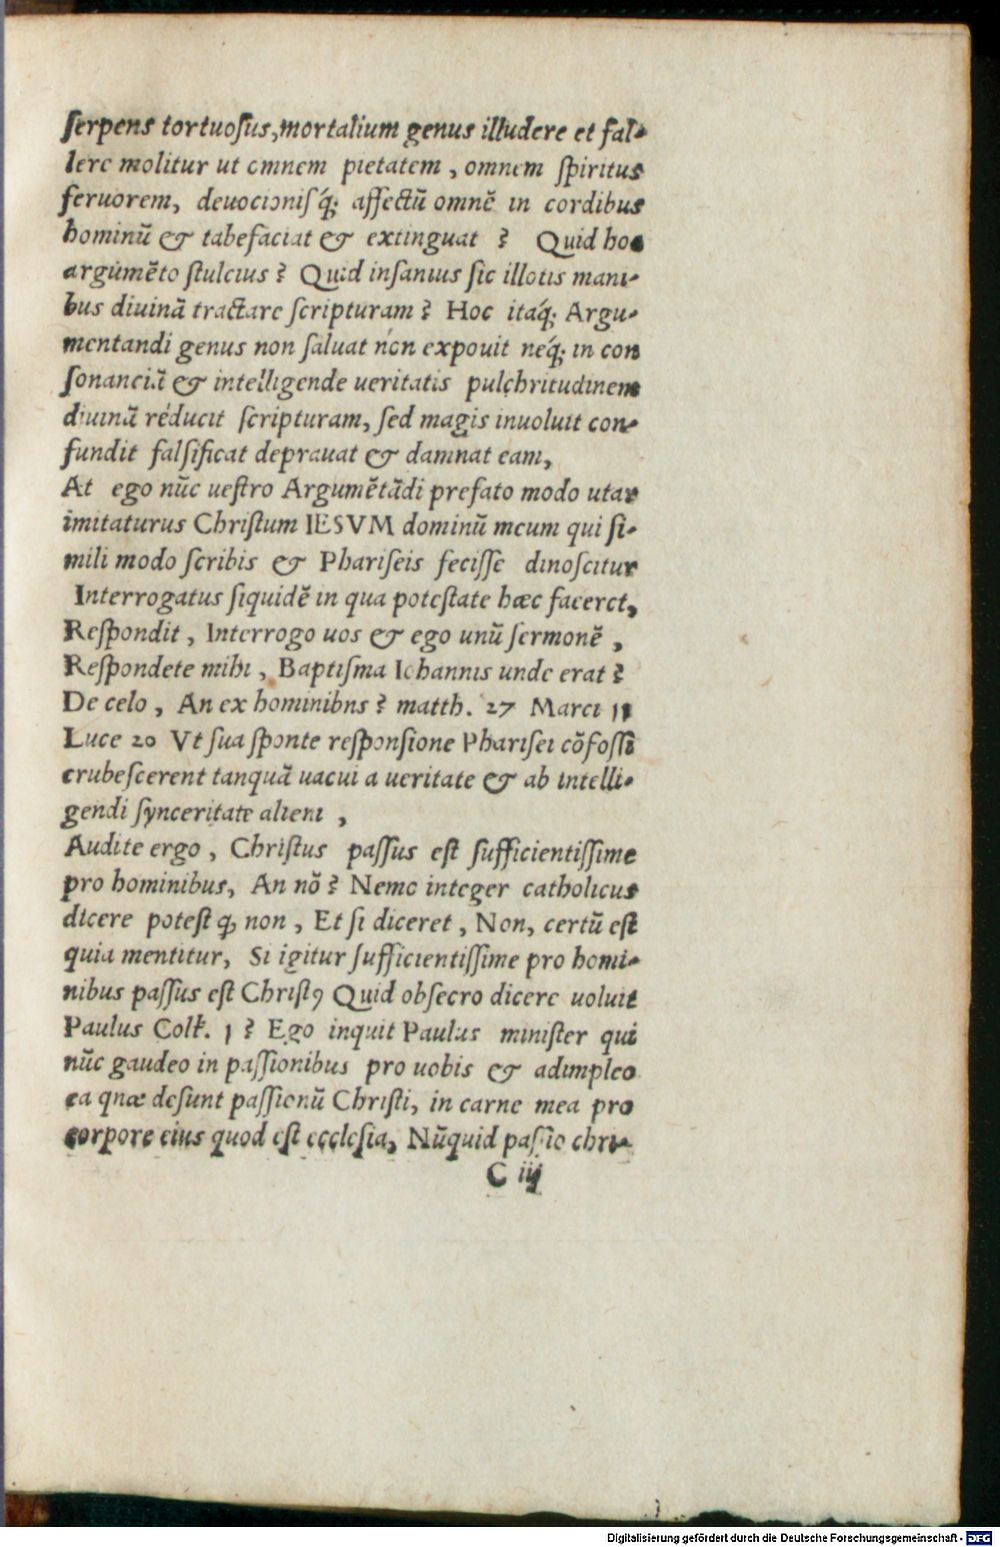 serpens tortuosus, mortalium genus illudere et fal-
lere molitur ut omnem pietatem, omnem spiritus
feruorem, deuocionisq́; affectū omnē in cordibus
hominū & tabefaciat & extinguat ? Quid hoc
argumēto stulcius ? Quid insanius sic illotis mani-
bus diuinā tractare scripturam ? Hoc itaq́; Argu-
mentandi genus non saluat nón expouit neq́; in con
sonanciā & intelligende ueritatis pulchritudinem
diuinā réducit scripturam, sed magis inuoluit con-
fundit falsificat deprauat & damnat eam,
At ego nūc uestro Argumētādi prefato modo utar
imitaturus Christum IESVM dominū meum qui si-
mili modo scribis & Phariseis fecisse dinoscitur
Interrogatus siquidē in qua potestate hæc faceret,
Respondit, Interrogo uos & ego unū sermonē,
Respondete mihi, Baptisma Iohannis unde erat ?
De celo, An ex hominibns ? matth. 27 Marci 11
Luce 20 Vt sua sponte responsione Pharisei cōfossi
erubescerent tanquā uacui a ueritate & ab intelli-
gendi synceritate alieni,
Audite ergo, Christus passus est sufficientissime
pro hominibus, An nō ? Nemo integer catholicus
dicere potest q, non, Et si diceret, Non, certū est
quia mentitur, Si igitur sufficientissime pro homi-
nibus passus est Christꝯ Quid obsecro dicere uoluit
Paulus Coll. 1 ? Ego inquit Paulus minister qui
nūc gaudeo in passionibus pro uobis & adimpleo
ea qnæ desunt passionū Christi, in carne mea pro
corpore eius quod est ecclesia, Nūquid passio chri-
C iij
Digitalisierung gefördert durch die Deutsche Forschungsgemeinschaft - DFG